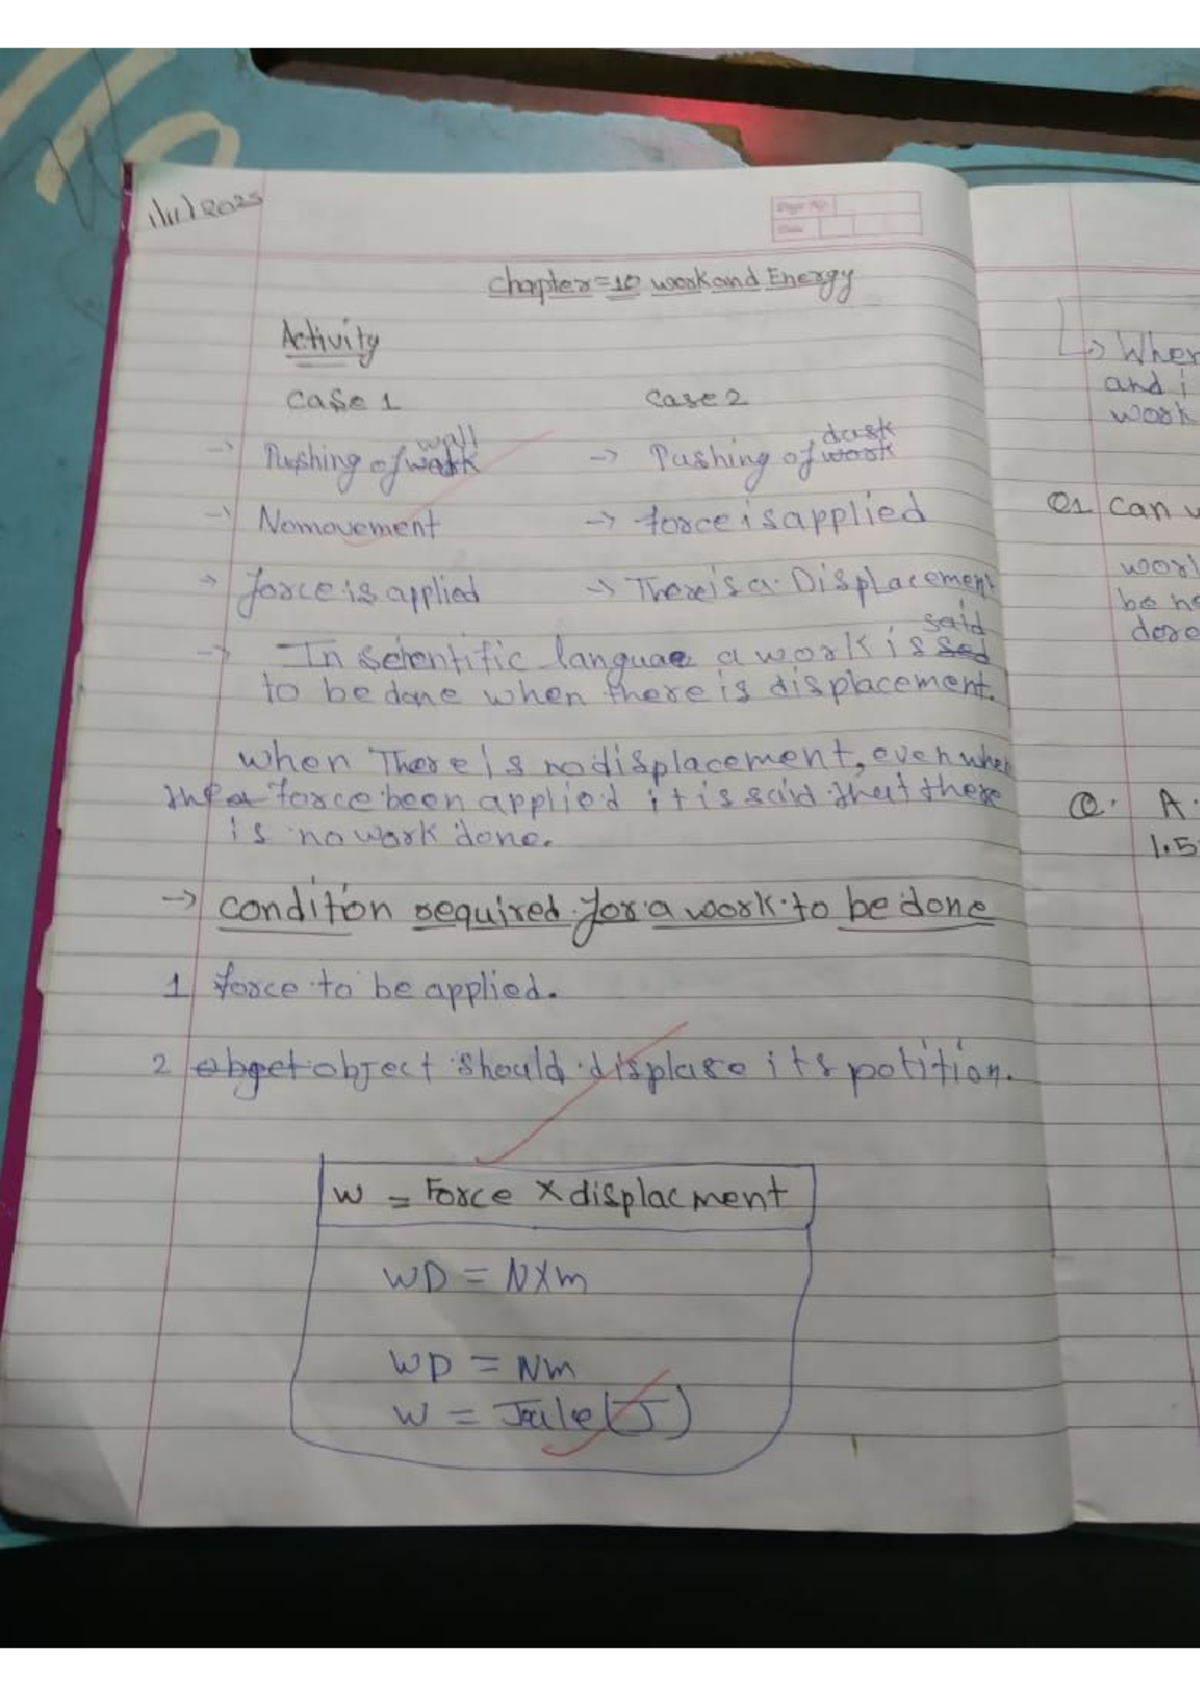 1/11/2025
Page No.
Date
Chapter=10 work and Energy
Activity
Case 1
Case 2
→ Pushing of work wall
→ Pushing of work dask
→ No movement
→ force is applied
→ force is applied
→ There is a Displacement
→ In scientific languae a work is sed said
to be done when there is displacement.
when There is no displacement, even when
the force been applied it is said that there
is no work done.
→ condition required for a work to be done
1 force to be applied.
2 obget object should displase its potition.
W = Force × displacment
WD = N×m
WD = Nm
W = Joule (J)
→ When
and i
work
Q1 Can
be
Q. A.
1.5